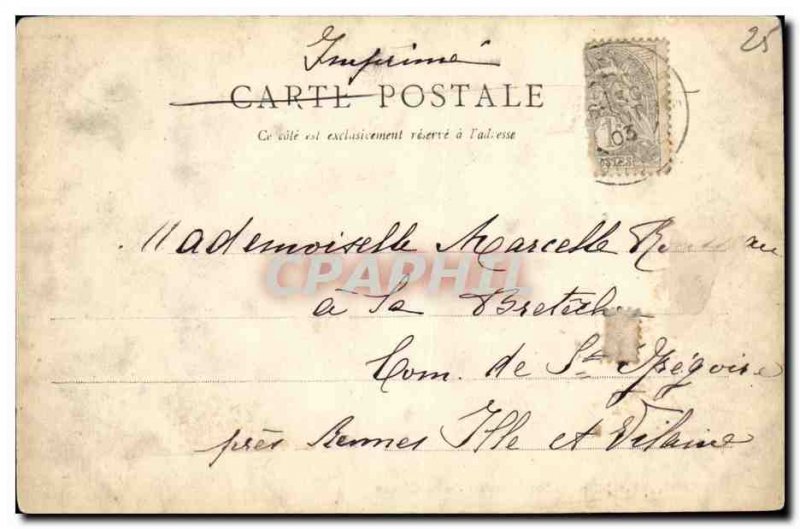 25
Imprimé
CARTE POSTALE
Ce côté est exclusivement réservé à l'adresse
1
03
Mademoiselle Marcelle
CPAPHIL
à la Bretêche
Com. de St Grégoire
près Rennes Ille et Vilaine